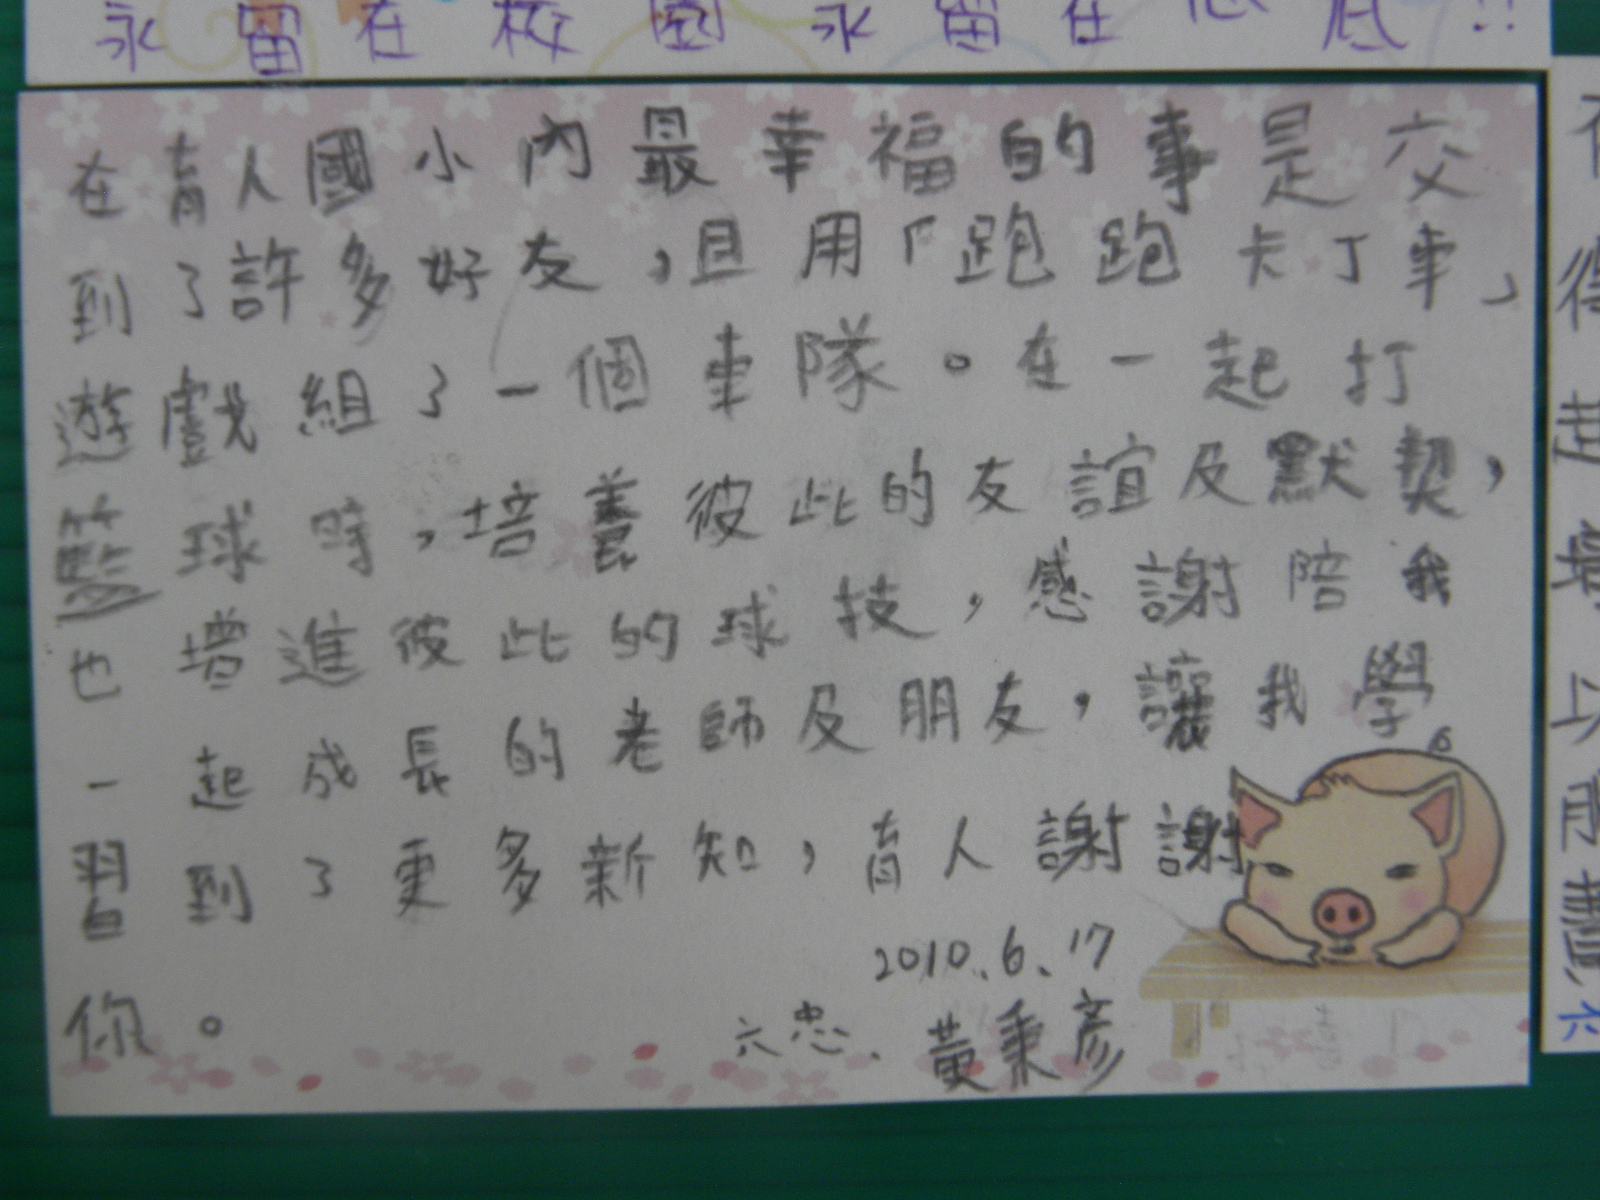 永留在校園永留在心底!!
在育人國小內最幸福的事是交
到了許多好友，且用「跑跑卡丁車」
遊戲組了一個車隊。在一起打
籃球時，培養彼此的友誼及默契，
也增進彼此的球技，感謝陪我
一起成長的老師及朋友，讓我學
習到了更多新知，育人謝謝
你。
2010.6.17
六忠、黃秉彥